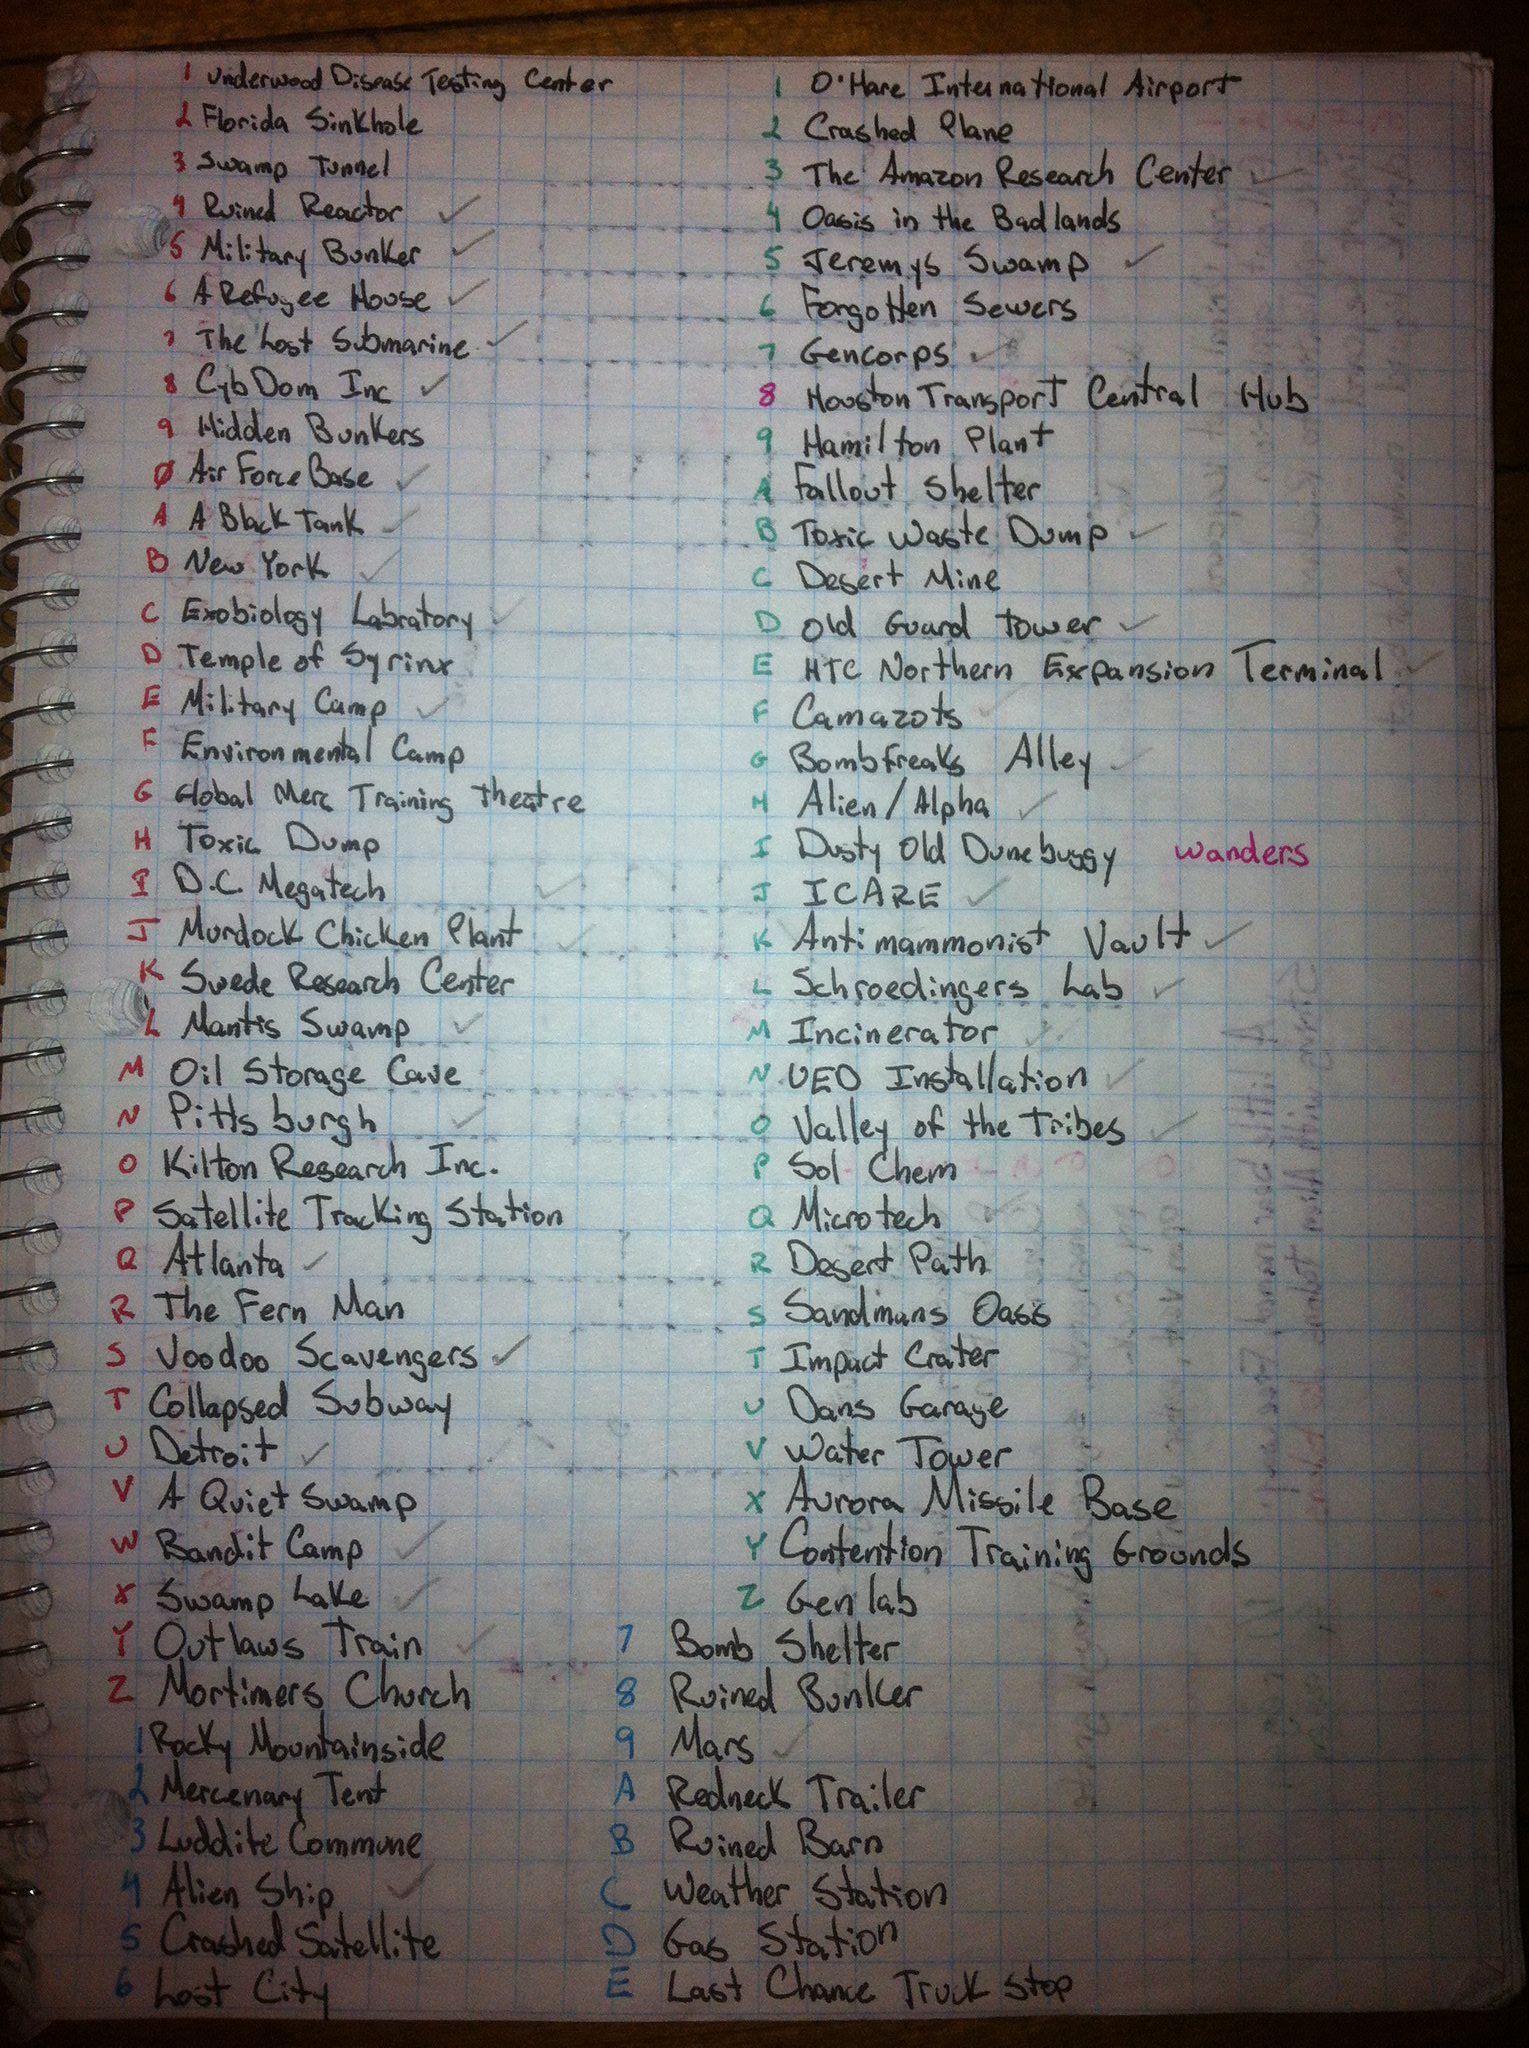 1 Underwood Disease Testing Center
2 Florida Sinkhole
3 Swamp Tunnel
4 Ruined Reactor ✓
5 Military Bunker ✓
6 A Refugee House ✓
7 The Lost Submarine ✓
8 CybDom Inc ✓
9 Hidden Bunkers
0 Air Force Base ✓
A A Black Tank ✓
B New York ✓
C Exobiology Labratory ✓
D Temple of Syrinx
E Military Camp ✓
F Environmental Camp
G Global Merc Training Theatre
H Toxic Dump
I D.C. Megatech ✓
J Murdock Chicken Plant ✓
K Swede Research Center
L Mantis Swamp ✓
M Oil Storage Cave
N Pittsburgh ✓
O Kilton Research Inc.
P Satellite Tracking Station
Q Atlanta ✓
R The Fern Man
S Voodoo Scavengers ✓
T Collapsed Subway
U Detroit ✓
V A Quiet Swamp
W Bandit Camp ✓
X Swamp Lake ✓
Y Outlaws Train ✓
Z Mortimers Church
1 Rocky Mountainside
2 Mercenary Tent
3 Luddite Commune
4 Alien Ship ✓
5 Crashed Satellite
6 Lost City
1 O'Hare International Airport
2 Crashed Plane
3 The Amazon Research Center ✓
4 Oasis in the Badlands
5 Jeremys Swamp ✓
6 Forgotten Sewers
7 Gencorps ✓
8 Houston Transport Central Hub
9 Hamilton Plant
A Fallout Shelter
B Toxic Waste Dump ✓
C Desert Mine
D Old Guard Tower ✓
E HTC Northern Expansion Terminal ✓
F Camazots ✓
G Bombfreaks Alley ✓
H Alien/Alpha ✓
I Dusty Old Dunebuggy wanders
J ICARE ✓
K Antimammonist Vault ✓
L Schroedingers Lab ✓
M Incinerator ✓
N UEO Installation ✓
O Valley of the Tribes ✓
P Sol Chem
Q Microtech ✓
R Desert Path
S Sandmans Oasis
T Impact Crater
U Dans Garage
V Water Tower
X Aurora Missile Base
Y Contention Training Grounds
Z Gen lab
7 Bomb Shelter
8 Ruined Bunker
9 Mars ✓
A Redneck Trailer
B Ruined Barn
C Weather Station
D Gas Station
E Last Chance Truck Stop